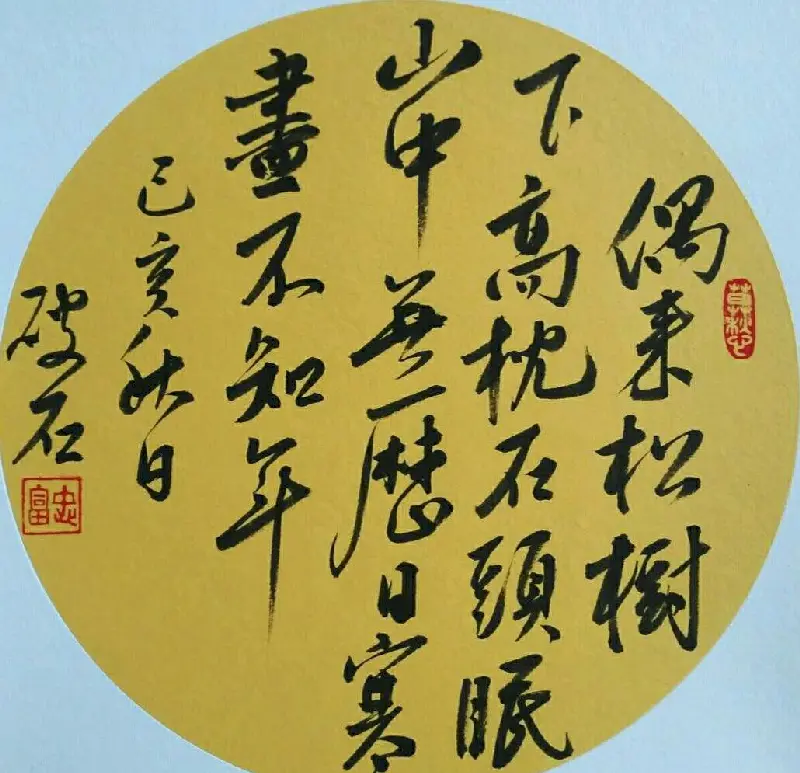 偶来松樹
下高枕石頭眠
山中無歷日寒
畫不知年
己亥秋日
破石
忠富